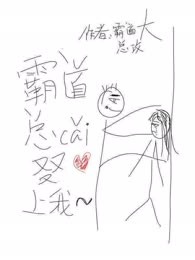 作者:霸道大
总孩
霸道
总cǎi
叕
上我~